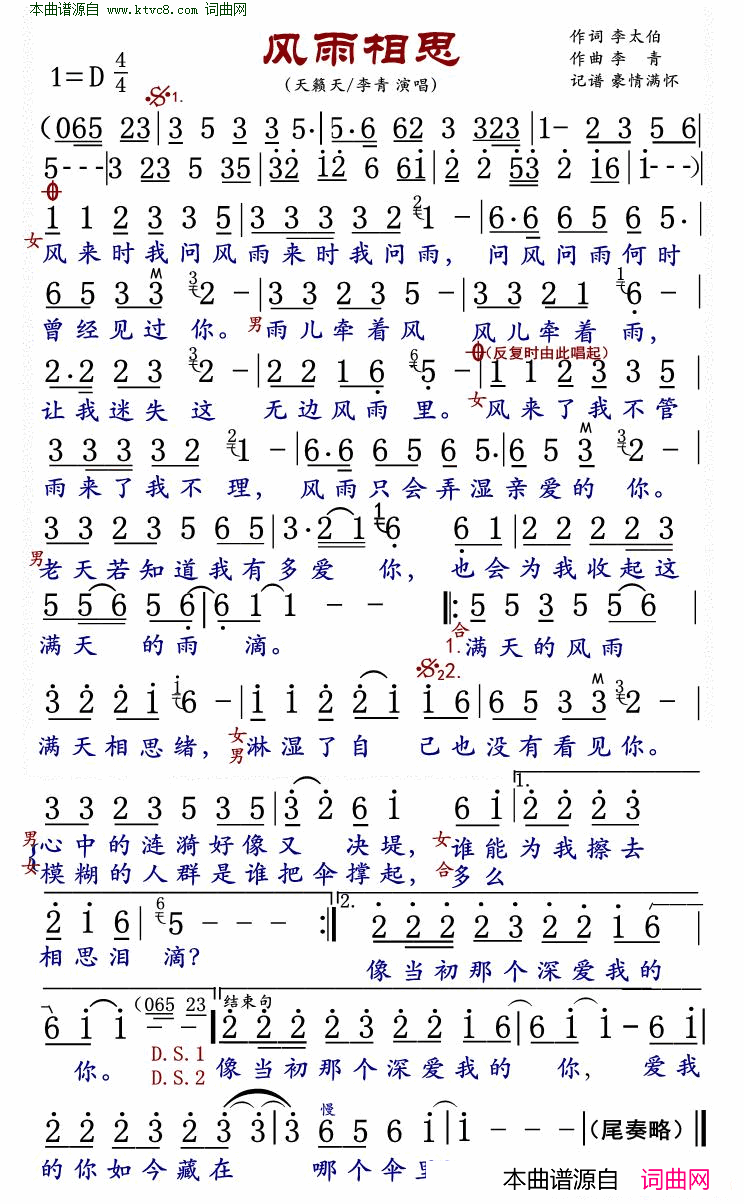 本曲谱源自 www.ktvc8.com 词曲网
风雨相思
作词 李太伯
作曲 李 青
记谱 豪情满怀
1=D 4/4
(天籁天/李青 演唱)
1.
(065 23|3 5 3 3 5·|5·6 62 3 323|1- 2 3 5 6|
5---|3 23 5 35|32 12 6 661|2 2 53 2 16|1---)|
1 1 2 3 3 5|3 3 3 3 2 2 1 -|6·6 6 5 6 5·|
女风来时我问风雨来时我问雨， 问风问雨何时
6 5 3 3 3 2 -|3 3 2 3 5 -|3 3 2 1 1 6 -|
曾经见过 你。男雨儿牵着风 风儿牵着 雨，
(反复时由此唱起)
2·2 2 3 3 2 -|2 2 1 6 6 5 -|1 1 2 3 3 5|
让我迷失 这 无边风雨 里。女风来了我不管
3 3 3 3 2 2 1 -|6·6 6 5 6 5·|6 5 3 3 2 -|
雨来了我不 理， 风雨只会弄湿亲爱的 你。
3 3 2 3 5 6 5|3·2 1 1 6 6 1|2 2 2 2 2 3|
男老天若知道我有多爱 你，也会为我收起这
5 5 6 5 6|6 1 1 - -‖:5 5 3 5 5 6|
满天 的雨 滴。 合 1.满天的风雨
2 2.
3 2 2 1 1 6 -|1 1 2 2 1 1 6|6 6 5 3 3 3 2 -|
满天相思绪， 女男淋湿了自 己也没有看见你。
1.
3 3 2 3 5 3 5|3 2 6 1 6 1|2 2 2 3|
男心中的涟漪好像又 决堤， 女谁能为我擦去
女模糊的人群是谁把伞撑起， 合多么
2.
2 1 6|6 5 - - -:‖2 2 2 2 3 2 2 1 6|
相思泪 滴? 像当初那个深爱我的
(065 23 结束句
6 1 1 - -‖2 2 2 2 3 2 2 1 6|6 1 1 - 6 1|
你。 D.S.1 像当初那个深爱我的 你， 爱我
D.S.2
慢
2 2 2 2 2 3|3 6 5 6 1|1 - - -(尾奏略)‖
的你如今藏在 哪个伞里
本曲谱源自 词曲网